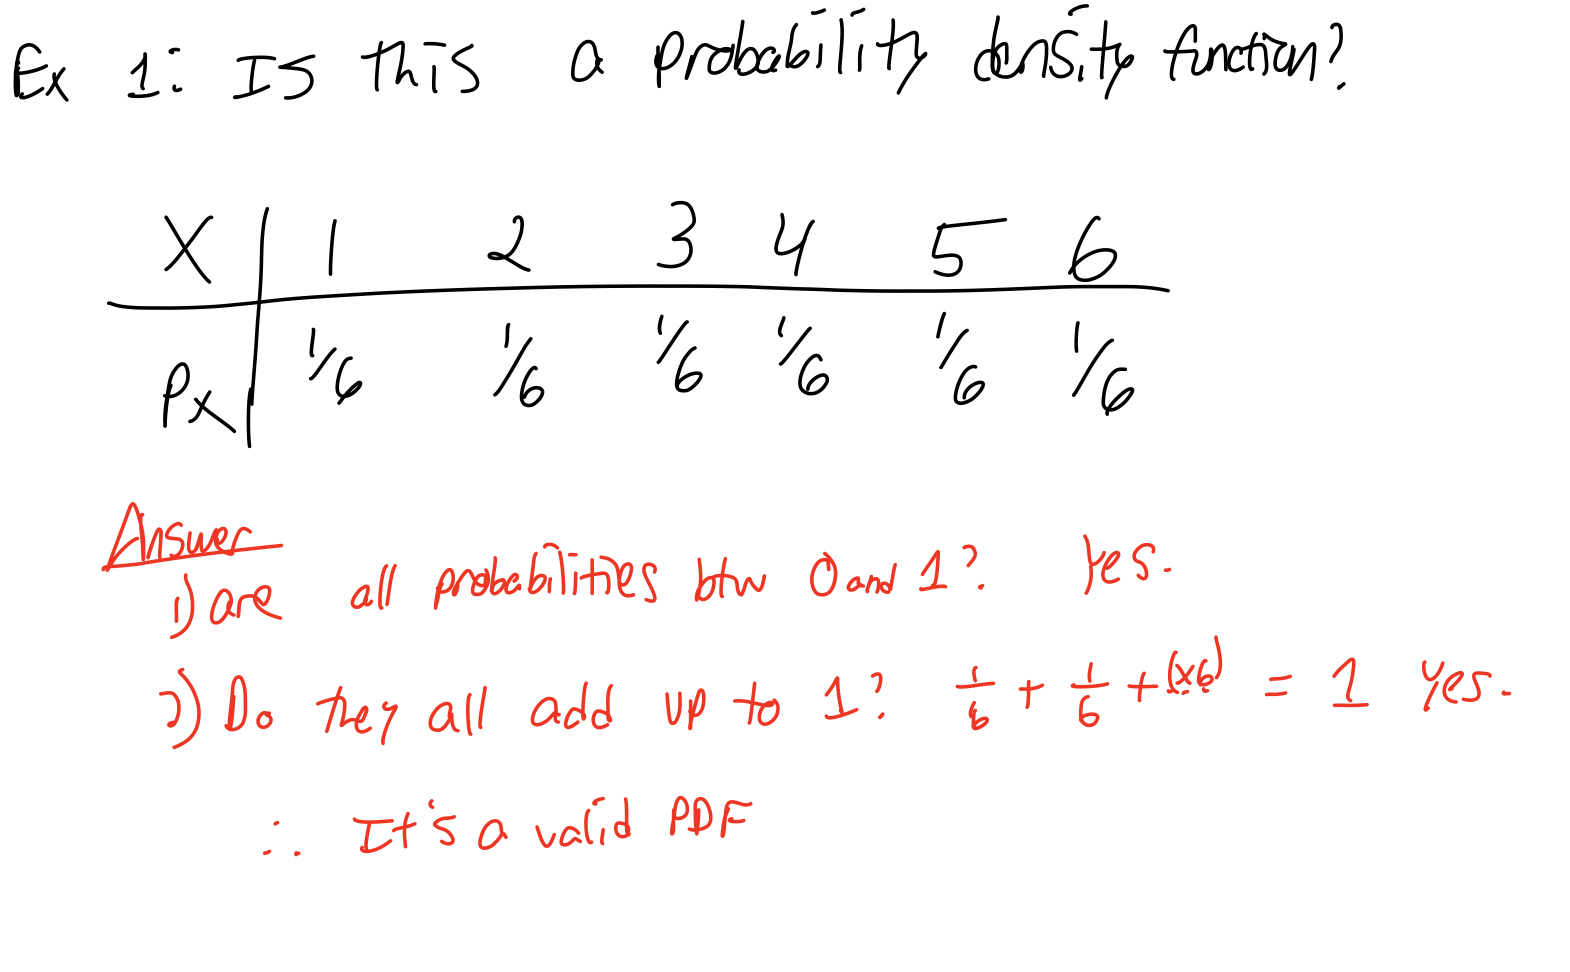 Ex 1: Is this a probability density function?
X 1 2 3 4 5 6
Px 1/6 1/6 1/6 1/6 1/6 1/6
Answer
1) are all probabilities btw 0 and 1? Yes.
2) Do they all add up to 1? 1/6 + 1/6 + ... (x6) = 1 Yes.
∴ It's a valid PDF